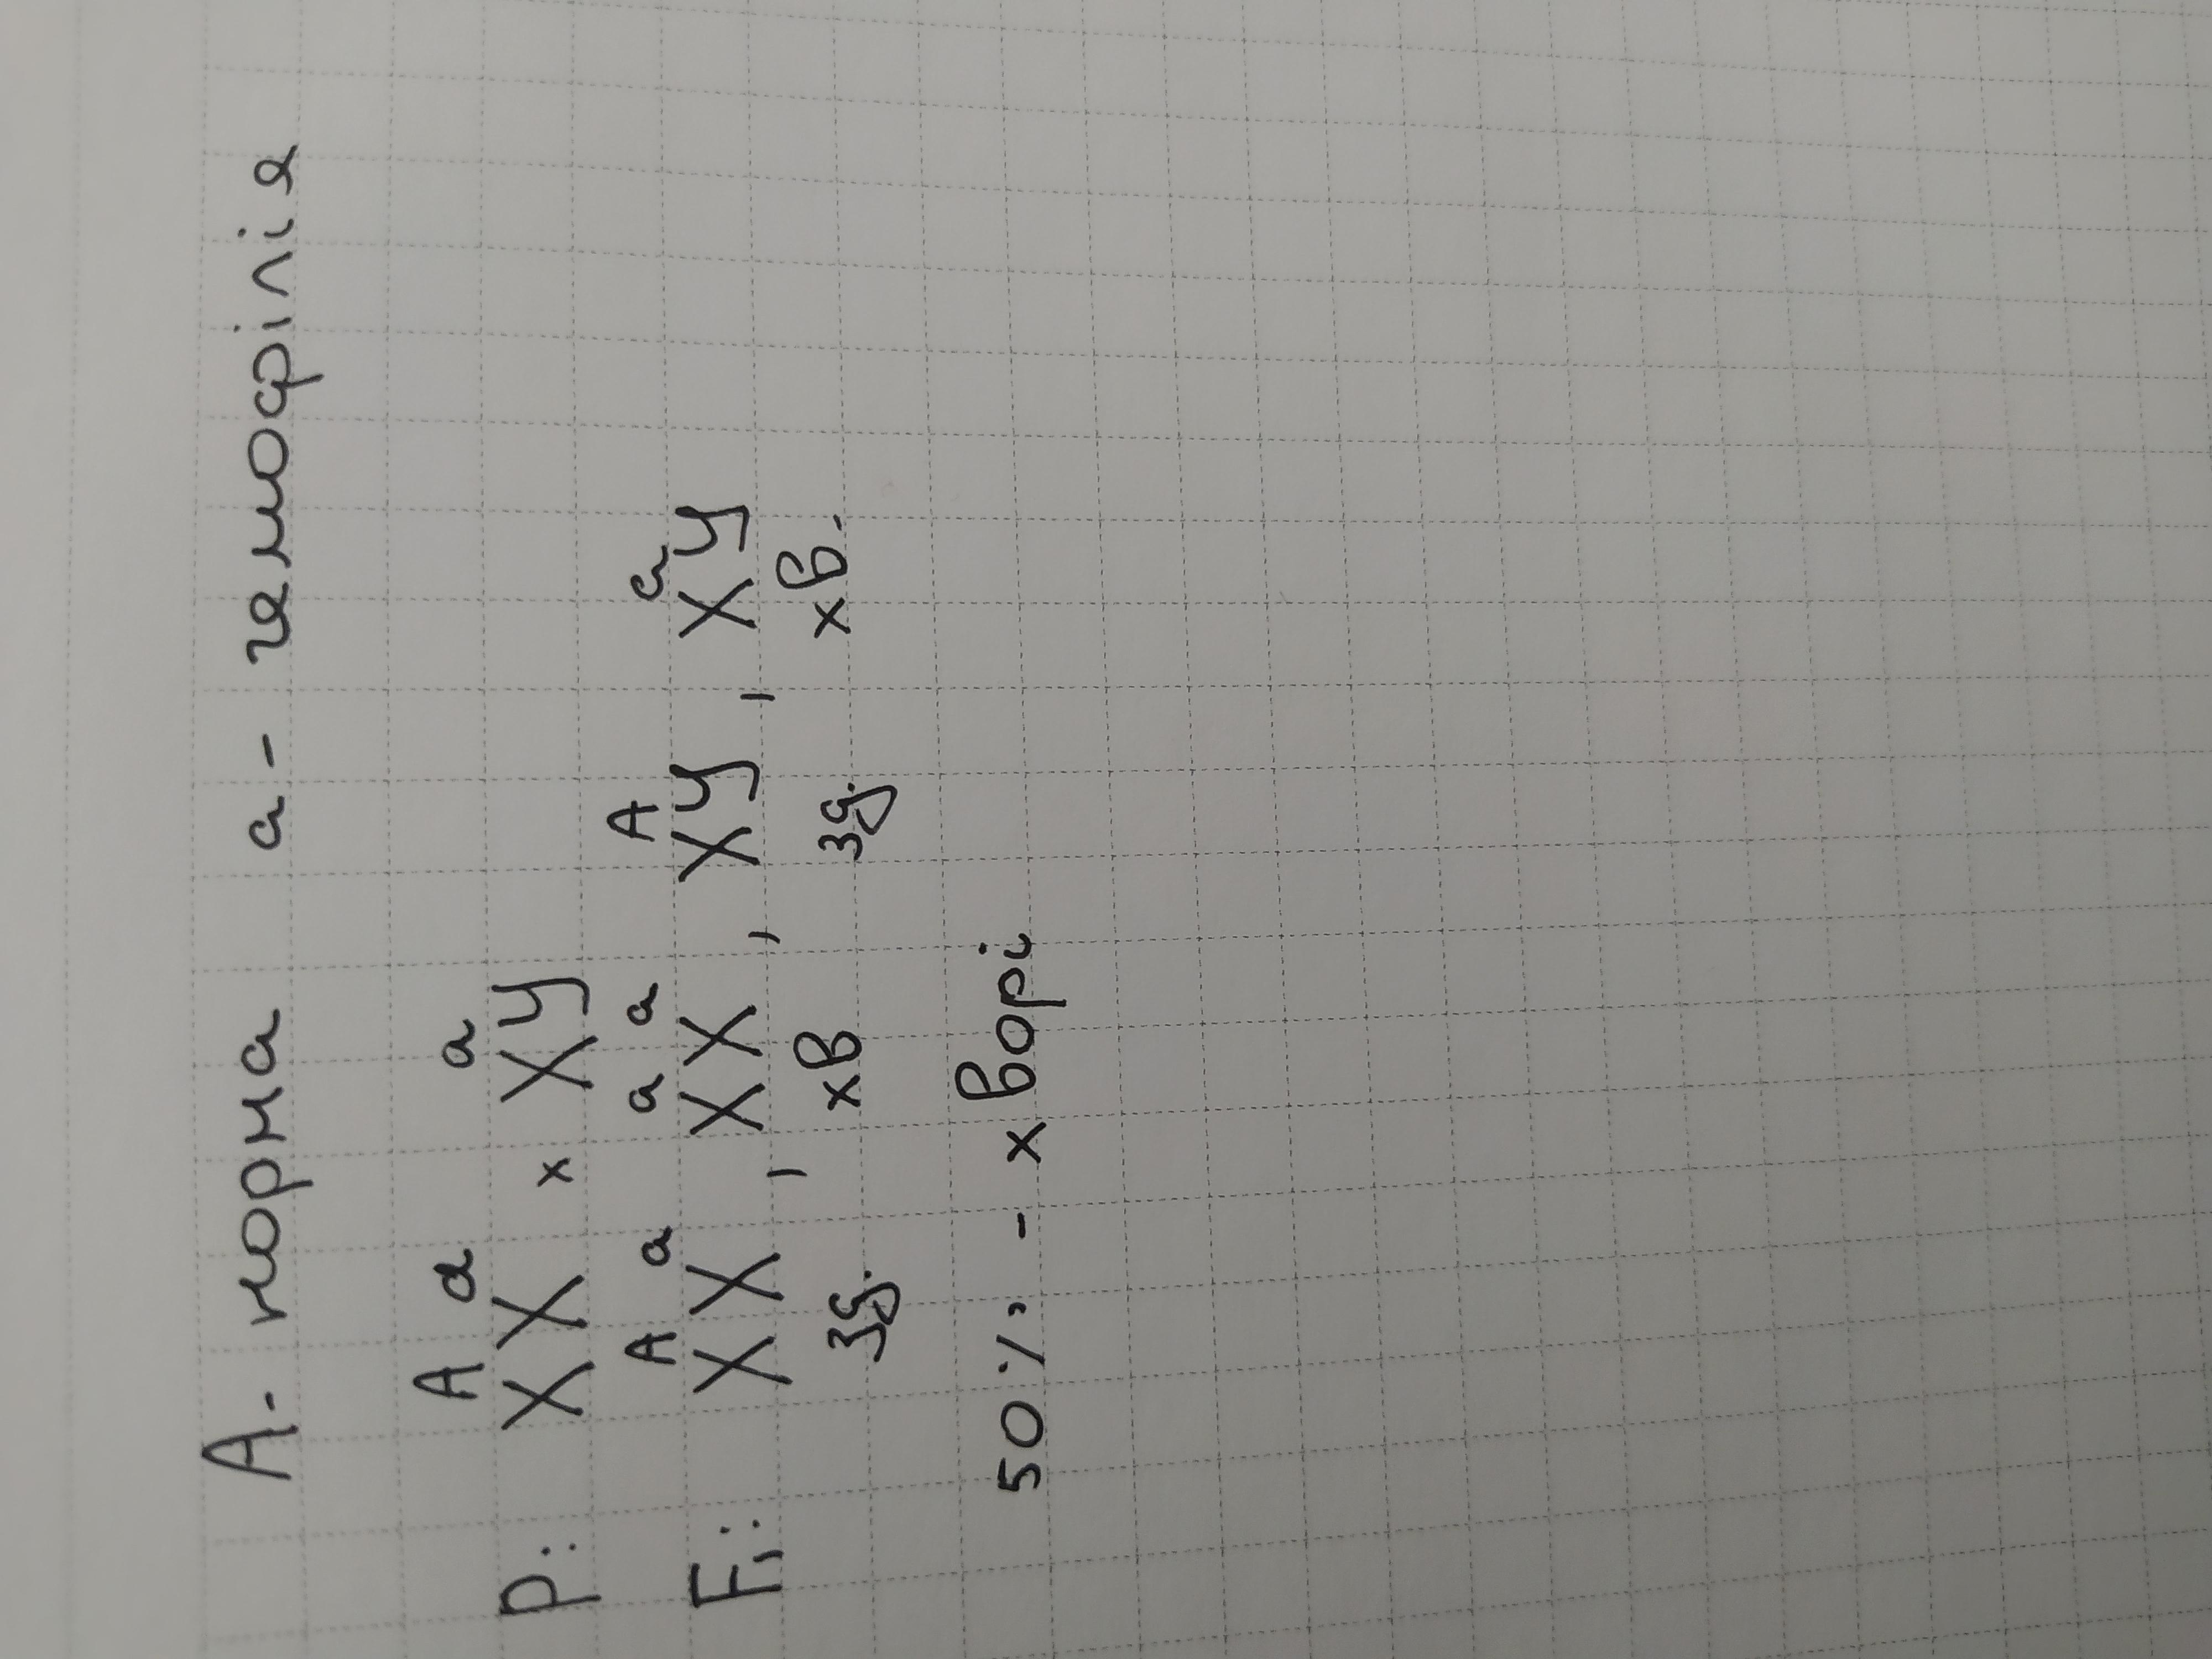 А - норма а - гемофілія
P: XᴬXᵃ x XᵃY
F₁: XᴬXᵃ, XᵃXᵃ, XᴬY, XᵃY
зд. хв зд. хв.
50% - хворі